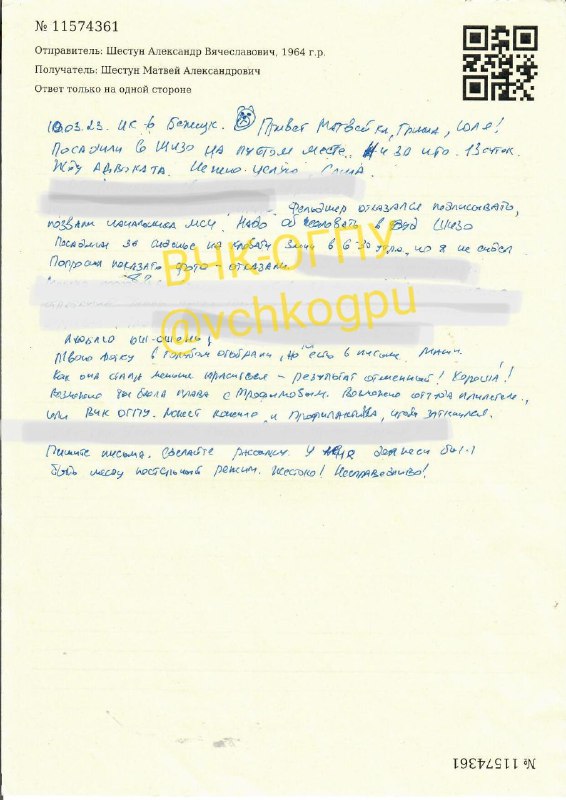 № 11574361
Отправитель: Шестун Александр Вячеславович, 1964 г.р.
Получатель: Шестун Матвей Александрович
Ответ только на одной стороне
10.03.23. ИК 6 Бежецк. Привет Матвейка, Гриша, Юля!
Посадили в ШИЗО на пустом месте. 13 суток.
Жду адвоката. Нежно целую Саша.
Фельдшер отказался подписывать,
позвали начальника МСЧ. Надо обжаловать в суд ШИЗО
Посадили за сиденье на кровати в 6-30 утра, но я не сидел.
Попросил показать фото - отказали.
ВЧК-ОГПУ
@vchkogpu
Люблю оч-очень!
Твою в голубом отобрали, но есть в письме Маши.
Как она стала меньше краситься - результат отменный! Хороша!
Возможно ты была права с Трофимовым. Возможно оттуда прилетело,
или ВЧК ОГПУ. Может конечно и профилактика, чтобы заткнулся.
Пишите письма. Сделайте рассылку. У меня должен был
быть месяц постельный режим. Жестоко! Несправедливо!
№ 11574361